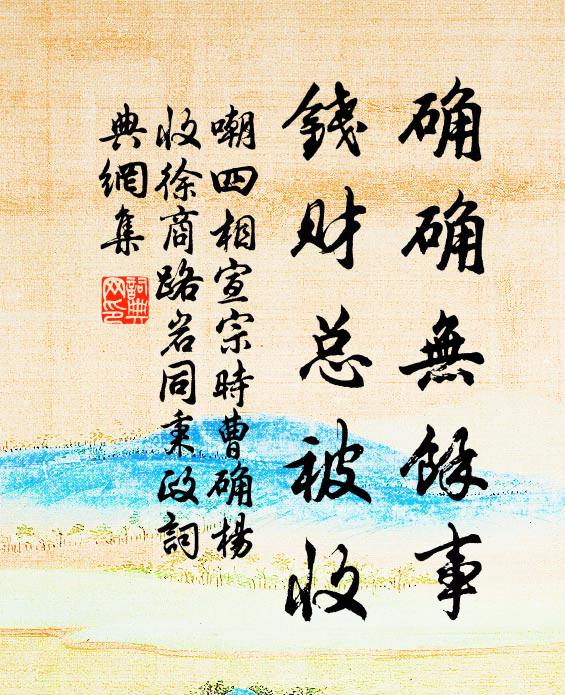 确确無餘事
錢財总被收
嘲四相宣宗時曹确楊
收徐商路岩同秉政詞
典網集
詞典
网印